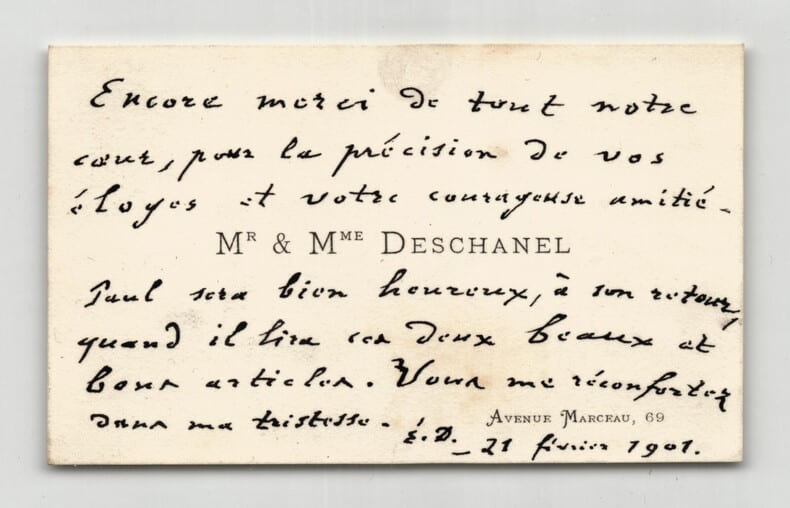 Encore merci de tout notre
cœur, pour la précision de vos
éloges et votre courageuse amitié.
MR & MME DESCHANEL
Paul sera bien heureux, à son retour,
quand il lira ces deux beaux et
bons articles. Vous me réconfortez
dans ma tristesse.
AVENUE MARCEAU, 69
É.D. _ 21 février 1901.